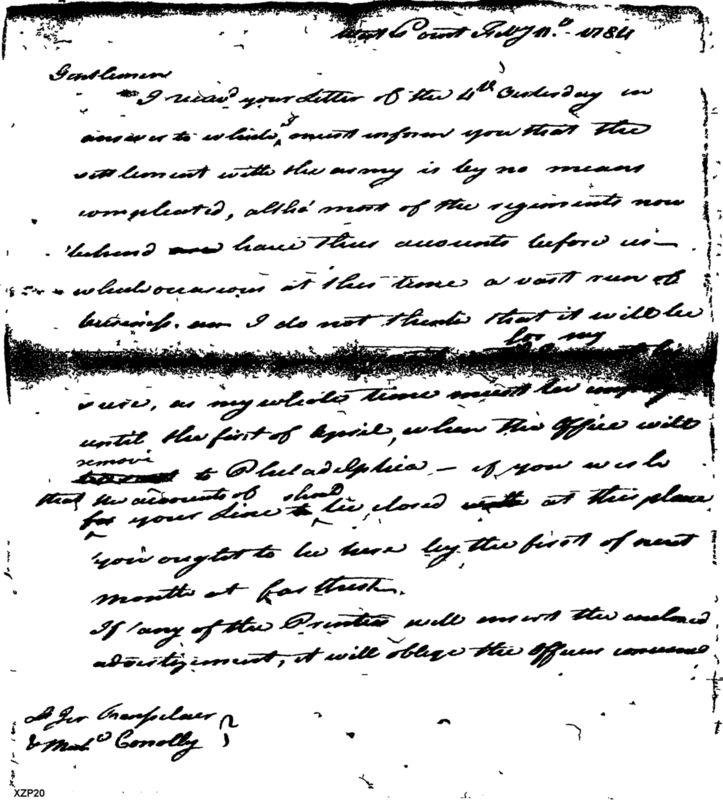 West Point Feby 11th 1784
Gentlemen
I receivd your Letter of the 4th Yesterday in
answer to which I must inform you that the
settlement with the army is by no means
compleated, altho' most of the regiments now
behind have their accounts before us—
which occasions at this time a vast run of
business. I do not think that it will be
for my
sure, as my whole time must be
until the first of April, when the Office will
remove
to Philadelphia — if you wish
that the accounts of shoud
for your Line to be closed at this place
you ought to be here by the first of next
month at farthest.
If any of the Printers will insert the enclosed
advertizement, it will oblige the Officers concernd
Jer Ranselaer
& Michl Conolly
XZP20